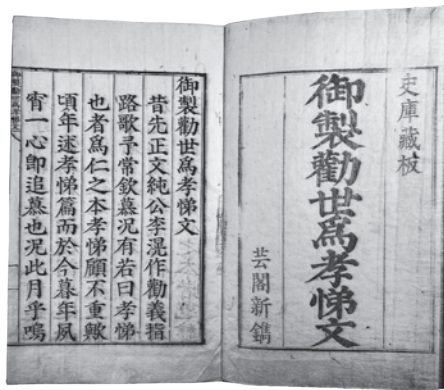 史庫藏板
御製勸世爲孝悌文
芸閣新鐫
御製勸世爲孝悌文
昔先正文純公李滉作勸義指
路歌予常欽慕況有若曰孝悌
也者爲仁之本孝悌顧不重歟
頃年述孝悌篇而於今暮年夙
宵一心卽追慕也況此月乎嗚